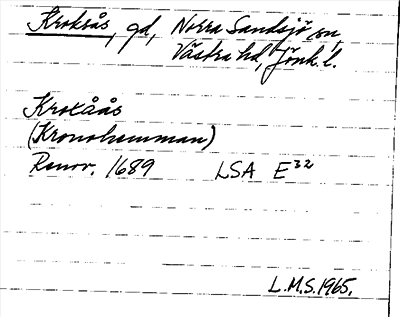 Kroksås, gd, Norra Sandsjö sn,
Västra hd, Jönk. l.
Krokåås
(Kronohemman)
Renov. 1689 LSA E³²
L.M.S. 1965.